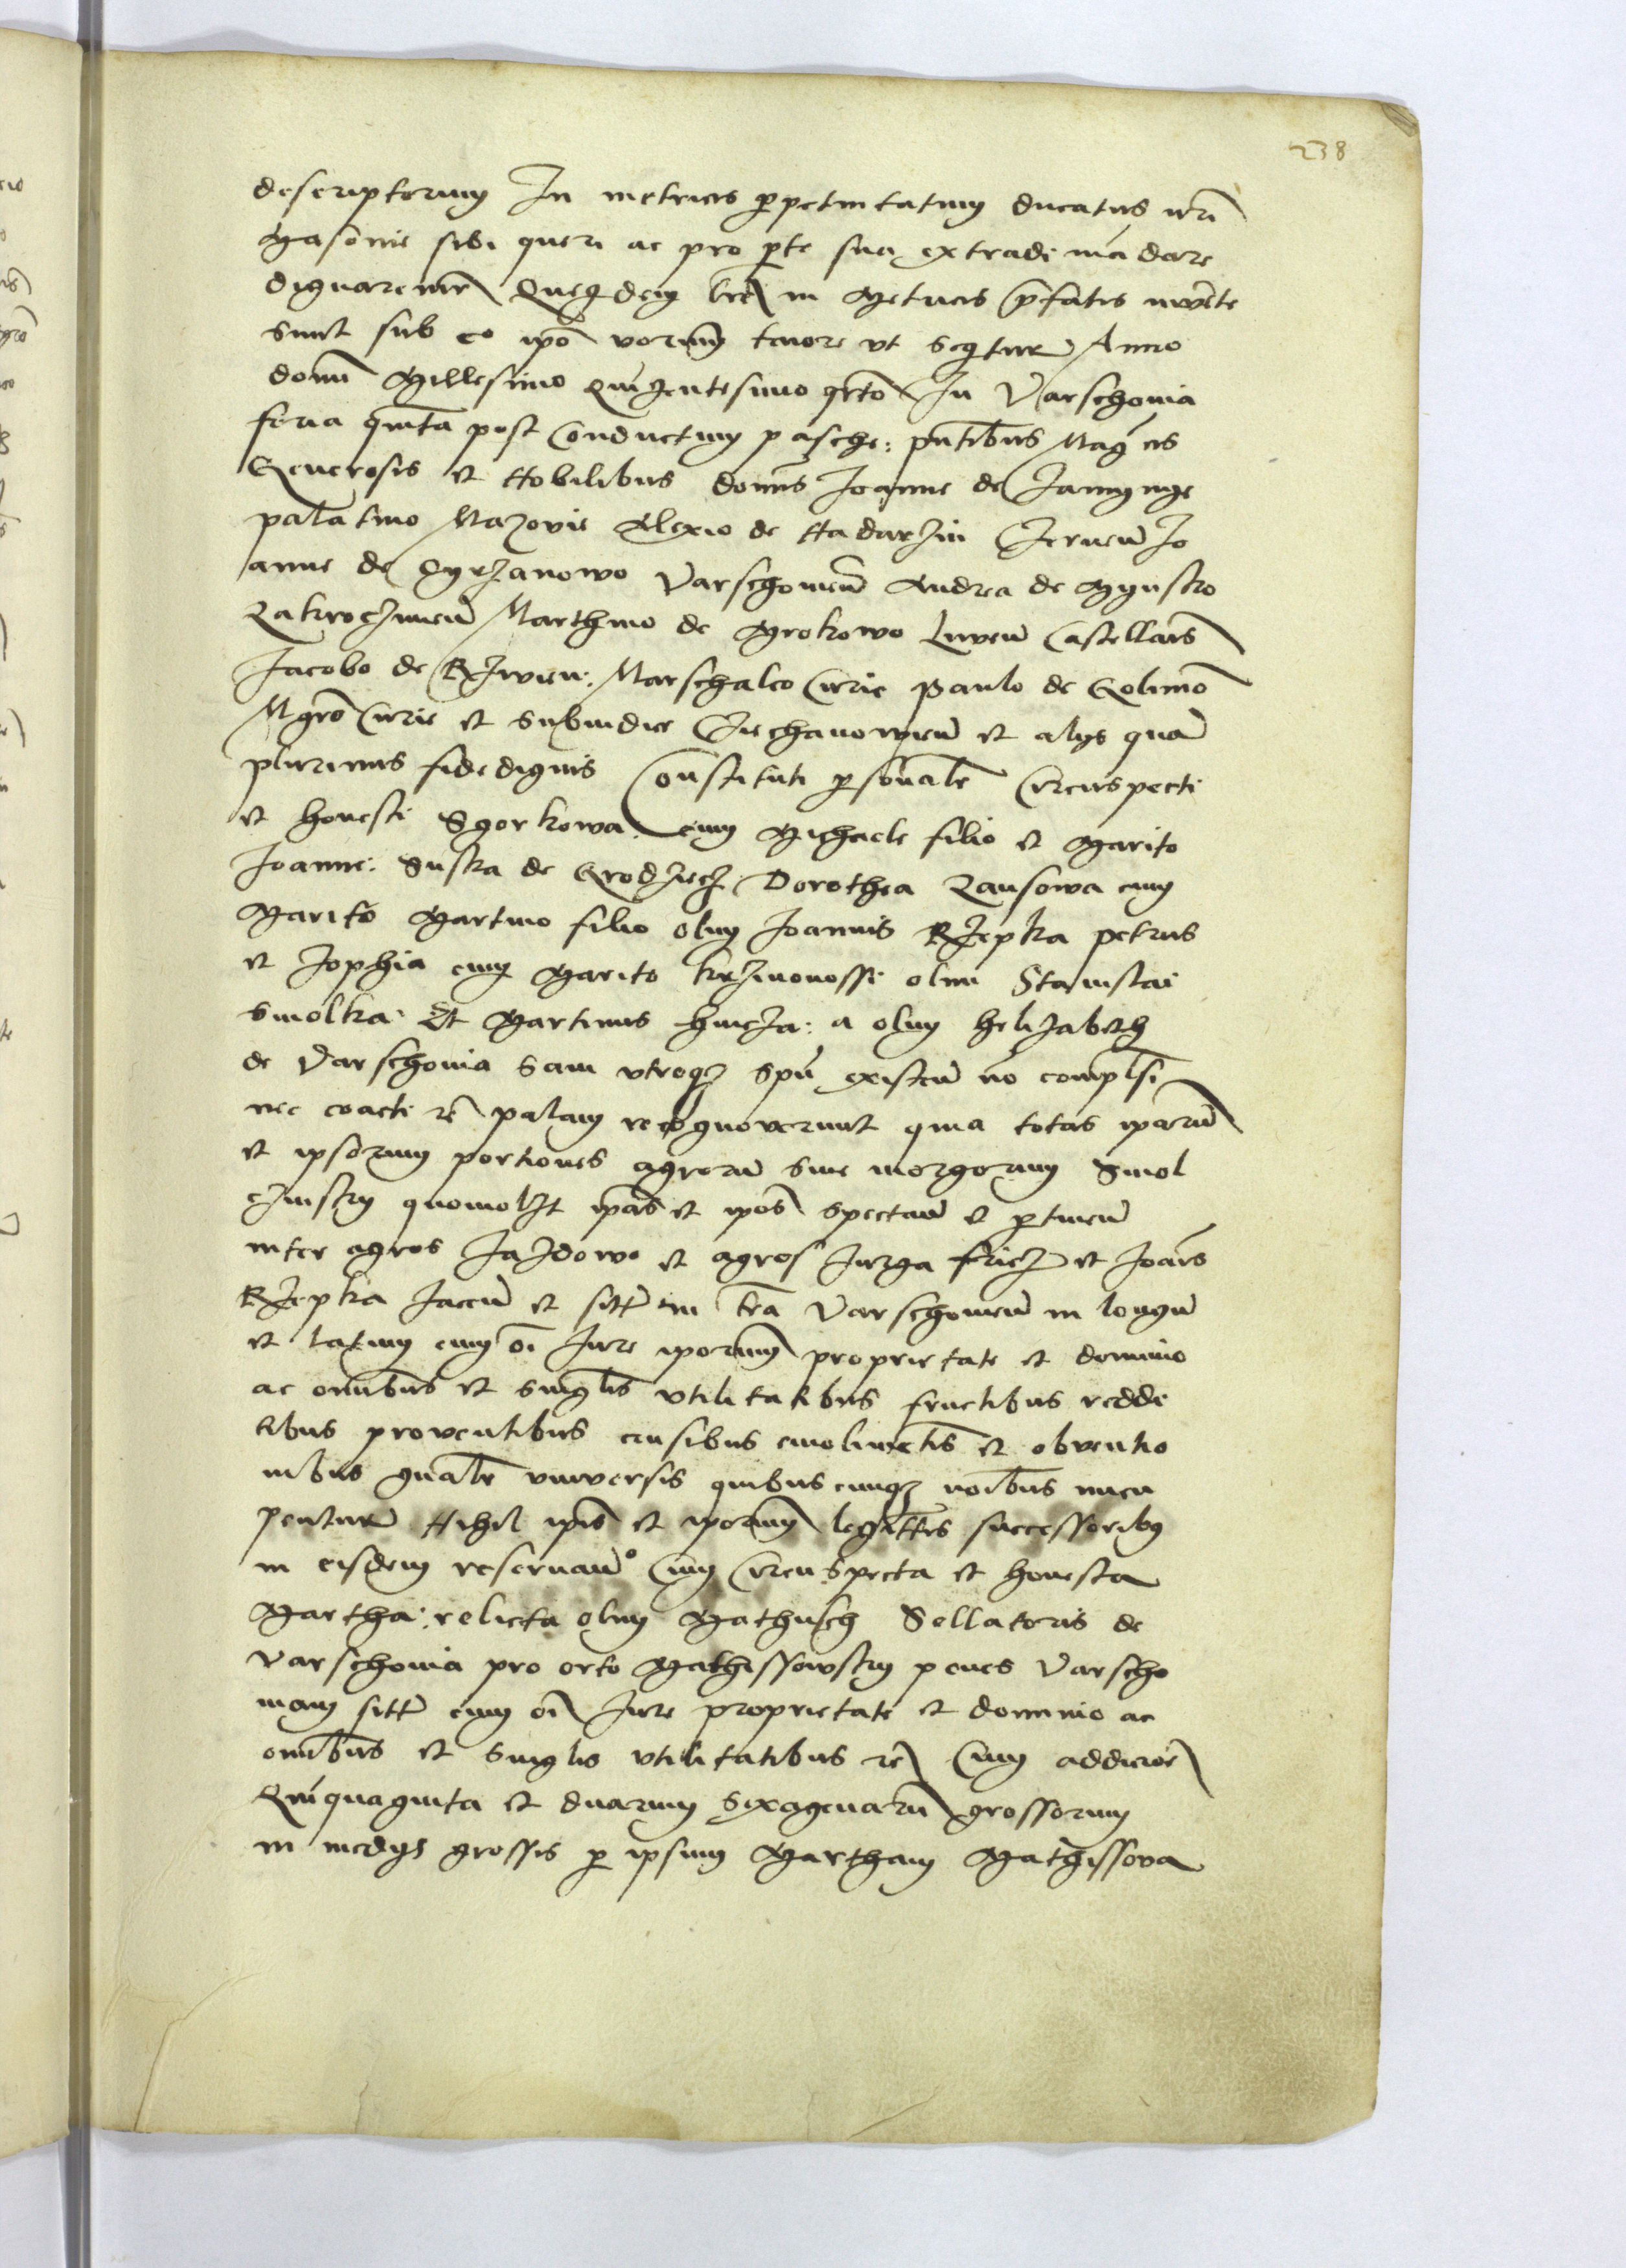 238
descriptorum In metricis ꝑpetuitatum ducatus nr̄i
Masovie sibi queri ac pro ꝑte sua extradi mādare
dignaremr̄ Queqdem lr̄e in Metricis p̄fatis invēte
sunt sub eo ip̄o verum tenore vt seqtur Anno
domī Millesimo Quīgentesimo qr̄to In Varschovia
feria quīta post Conductum pasche: pn̄tibus Maḡcis
Generosis et Nobilibus domīs Joanne de
palatino Mazovie Alexio de Nadarzin Czernen̄ Jo
anne de Dyrzanowo Varschovien̄ Andrea de
Zakroczimen̄ Marthino de Mrokowo Liven̄ Castellan̄s
Jacobo de Marschalco Curie Paulo de Golimō
Mgrō Curie et Subiudice Ciechanowien̄ et alys quā
plurimis fidedignis Constituti ꝑsonalr̄ Circuspecti
et honesti Sgorkowa cum Michaele filio et Marito
Joanne: Suska de Grodziecz Dorothea Zansowa cum
Marito Martino filio olim Joannis Rzepka petrus
et Zophia cum Marito krzivonossi olim Stanislai
Smolka Et Martinus a olim helizabeth
de Varschovia Sani vtroqz spū existen̄ nō compulsi
nec coacti rc̄ palam recognoverunt quia totas iparū
et ipsorum portiones agrorū sive morgorum Smol
czinsky quomolzt ip̄as et ip̄os spectan̄ et ꝑtinen̄
inter agros Jazdowo et agros Jurga fricz et Joān̄s
Rzepka Jacen̄ et sitt̄ in tr̄a Varschovien̄ in longū
et latum cum ōi Jure iporum proprietate et dominio
ac om̄ibus et singlis vtilitatibus fructibus reddi
tibus proventibus censibus emolimētis et obventio
nibus gnālr̄ vniversis quibuscunqz noībus nucu
pentur Nihil ip̄is et iporum legitt̄is successoribꝯ
in eisdem reservan̄o Cum Circuspecta et honesta
Martha: relicta olim Mathusch Sellatoris de
varschovia pro orto Mathissowsky penes Varscho
viam sitt̄ cum ōi Jure proprietate et dominio ac
om̄ibus et singlis vtilitatibus rc̄ Cum addicioē
Quīquaginta et duarum Sexagenarū grossorum
in medys grossis ꝑ ipsum Martham Mathissova